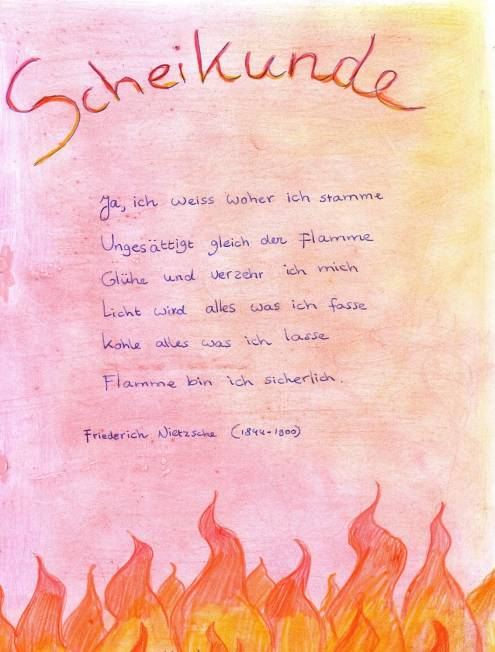 Scheikunde
Ja, ich weiss woher ich stamme
Ungesättigt gleich der Flamme
Glühe und verzehr ich mich
Licht wird alles was ich fasse
Kohle alles was ich lasse
Flamme bin ich sicherlich.
Friederich Nietzsche (1844-1900)